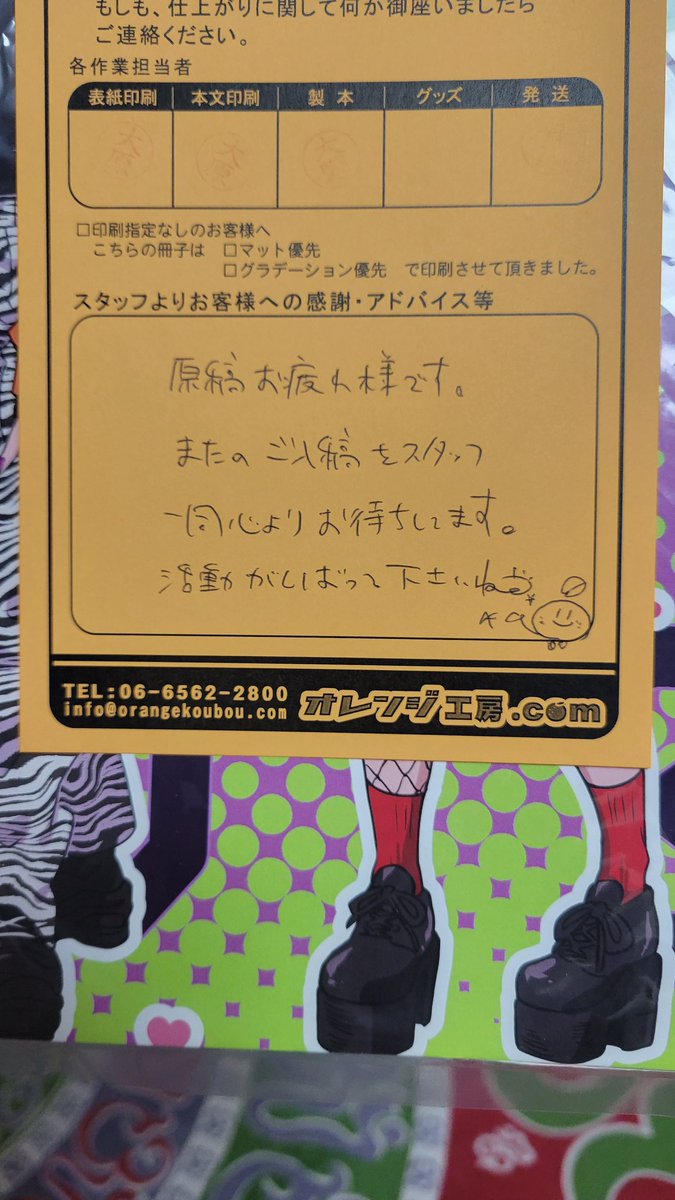 もしも、仕上がりに関して何か御座いましたら
ご連絡ください。
各作業担当者
表紙印刷 本文印刷 製本 グッズ 発送
□印刷指定なしのお客様へ
こちらの冊子は □マット優先
□グラデーション優先 で印刷させて頂きました。
スタッフよりお客様への感謝・アドバイス等
原稿お疲れ様です。
またのご入稿をスタッフ
一同心よりお待ちしてます。
活動がんばって下さいね
TEL:06-6562-2800
info@orangekoubou.com
オレンジ工房.com